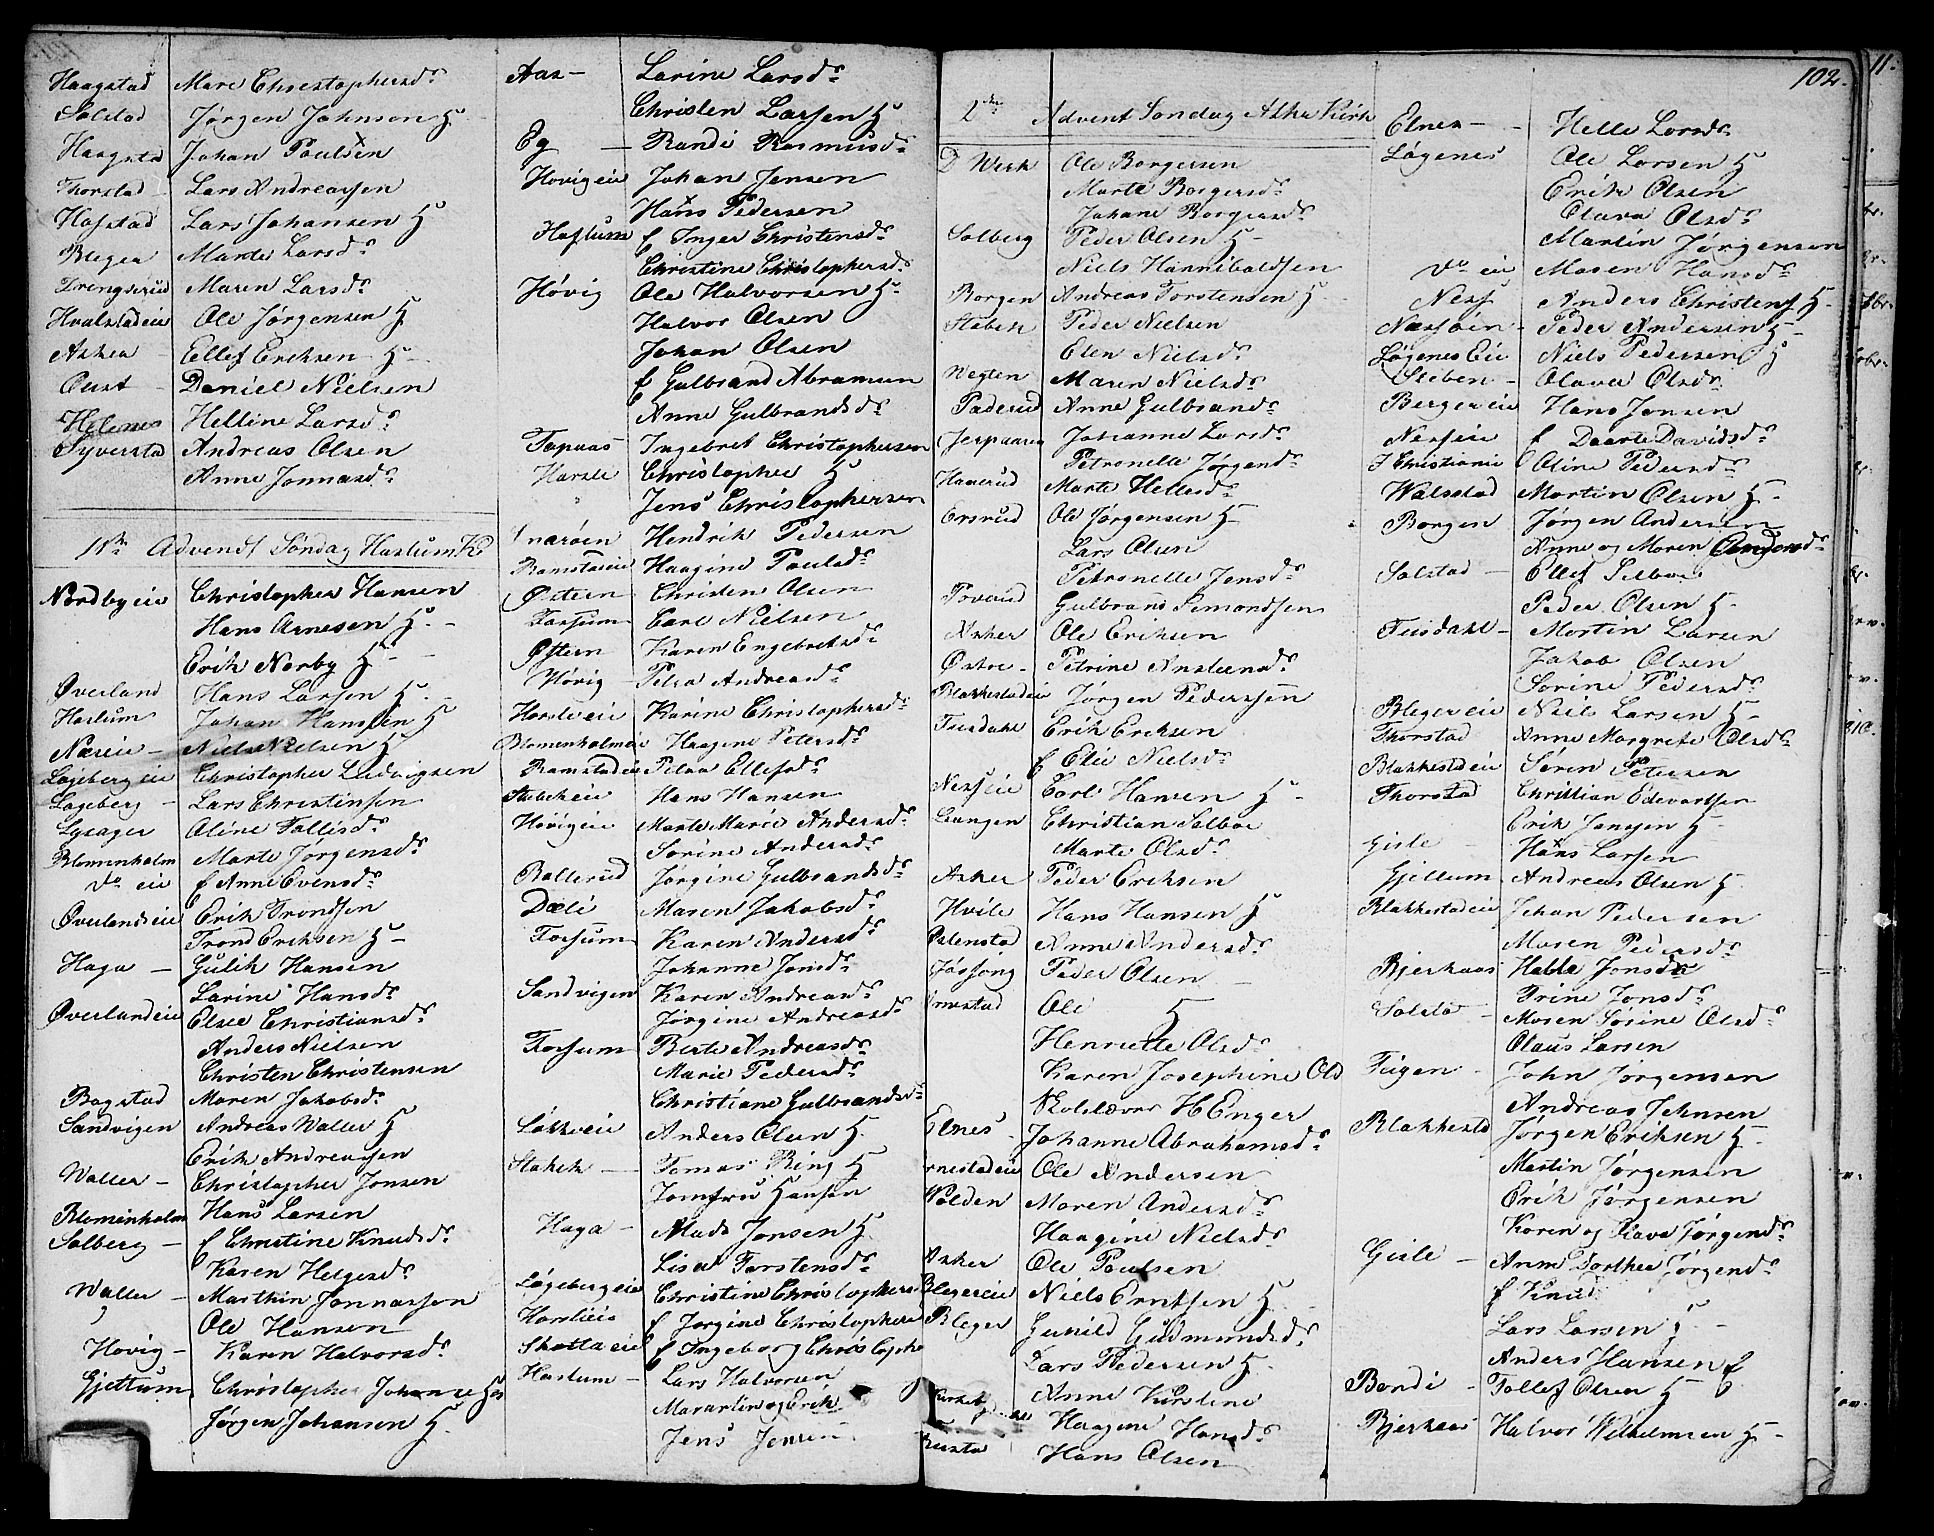 Haagstad Mare Christophersdr.
Solstad Jørgen Johnson H
Haagstad Johan Poulsen
Thorstad Lars Andreassen
Hofstad Lars Johansen H
Bleger Marte Larsdr.
Drengsrud Maren Larsdr.
Hvalstadeie Ole Jørgensen H
Asker Ellef Eriksen H
Oust Daniel Nielsen
Helenes Helline Larsdr.
Syverstad Andreas Olsen
Anne Jonnasdr.
1ste Advendt Søndag Haslum K
Nordby eie Christopher Hansen
Hans Arnesen H
Erik Norby H
Øverland Hans Larsen H
Haslum Johan Hanssen H
Næreie Niels Nielsen H
Løgeberg eie Christopher Ludvigsen
Løgeberg Lars Christinsen
Lysager Oline Tollisdr.
Blomenholm Marte Jørgensdr.
Do eie f Anne Evensdr.
Øverlandseie Erik Trondsen
Trond Eriksen H
Haga Gulik Hansen
Larine Hansdr.
Øverlandeie Elsee Christiansdr.
Anders Nielsen
Christen Christensen
Bogstad Maren Jakobsdr.
Sandvigen Andreas Waller H
Erik Andreassen
Waller Christopher Jonsen
Blomenholm Hans Larsen
Solberg f Christine Knudsdr.
Karen Helgesdr.
Waller Marthin Jonnassen
Ole Hansen
Høvig Karen Halvorsdr.
Gjettum Christopher Johanse H
Jørgen Johansen H
Aas Larine Larsdr.
Christen Larsen H
Eg Randi Rasmusdr.
Høvigeie Johan Jensen
Hans Pedersen
Haslum f Inger Christensdr.
Christine Christophersdr.
Høvig Ole Halvorsen H
Halvor Olsen
Johan Olsen
f Gulbrand Abramsen
Anne Gulbrandsdr.
Topaas Ingebret Christophersen
Horsle Christopher H
" Jens Christophersen
Snarøen Hendrik Pedersen
Ramstadeie Haagine Poulsdr.
Østern Christen Olsen
Fossum Carl Nielsen
Østern Karen Engebretsdr.
Høvig Petra Andreasdr.
Horsleeie Karine Christophersdr.
Blomenholmeie Haagine Petersdr.
Ramstadeie Petra Ellefsdr.
Stabekeie Hans Hansen
Høvigeie Marte Marie Andersdr.
Sorine Andersdr.
Ballerud Jørgine Gulbrandsdr.
Dæli Maren Jakobsdr.
Fossum Karen Andersdr.
Johanne Jonsdr.
Sandvigen Karen Andreasdr.
Jørgine Andreasdr.
Fossum Berte Andreasdr.
Marie Pedersdr.
Christiane Gulbrandsdr.
Løkkeeie Anders Olsen H
Stabek Tomas Ring H
Jomfru Hansen
Haga Mads Jonsen H
Lisa Torstensdr.
Løgebergeie Christine Christophers
Horsleeie f Jørgine Christophers
Skollaeie f Ingeborg Christophe
Haslum Lars Halvorsen
Mararlin og Erik
Jens Jensen
102.
2den Advent Søndag Asker Kirk
D Werk Ole Borgersen
Marte Borgersdr.
Johane Borgersdr.
Solberg Peder Olsen H
Niels Hannibaldsen
Borgen Andreas Torstensen H
Stabek Peder Nielsen
Elen Nielsdr.
Wegten Maren Nielsdr.
Paderud Anne Gulbrandr.
Jerpaasen Johanne Larsdr.
Petronelle Jørgendr.
Haverud Marte Hellesdr.
Ersrud Ole Jørgensen H
Lars Olsen
Petronelle Jensdr.
Tverud Gulbrand Simondsen
Asker Ole Eriksen
Østre Petrine Anstensdr.
Blakkestadeie Jørgen Pederssen
Tusdahl Erik Eriksen
f Elie Nielsdr.
Nesseie Carl Hansen H
Gangen Christian Selboe
Marte Olsdr.
Asker Peder Eriksen
Hvile Hans Hansen H
Østenstad Anne Andersdr.
Jøssong Peder Olsen
Ole H
Henriette Olsdr.
Karen Josephine Ols
Skolelærer H Enger
Elnes Johanne Abrahamsdr.
rnestadeie Ole Andersen
Wolden Maren Andersdr.
Haagine Nielsdr.
Asker Ole Paulsen
Blegereie Niels Erntsen H
Bleger Gunild Gudmundsdr.
Lars Pedersen H
Anne Kirstine
Haagine Hansdr.
Hans Olsen
Elnes Helle Larsdr.
Løgenes Ole Larsen H
Erik Olsen
Olava Olsdr.
Martin Jørgensen
Do eie Maren Hansdr.
Ness Anders Christens H
Næsøen Peder Andersen H
Løgenes Eie Niels Pedersen H
Steben Olava Olsdr.
Bergereie Hans Jonsen
Nesseie f Daarte Davidsdr.
I Christiania Oline Pedersdr.
Walestad Martin Olsen H
Borgen Jørgen Andersen
Anne og Maren Amdersdr.
Solstad Ellef Selboe
Peder Olsen H
Tusdahl Martin Larsen
Jakob Olsen
Sorine Pedersdr.
Blegereie Niels Larsen H
Thorstad Anne Margrete Olsdr.
Blakkestadeie Søren Petersen
Thorstad Christian Edevartsen
Erik Janssen H
Gisle Hans Larsen
Gjellum Andreas Olsen H
Blakkestadeie Johan Pedersen
Maren Pedersdr.
Bjerkaas Helle Jonsdr
Trine Jonsdr.
Solsta Maren Sørine Olsdr.
Olaus Larsen
Tugen John Jørgensen
Andreas Johnsen
Blakkestad Jørgen Eriksen H
Martin Jørgensen
Erik Jørgensen
Karen og Klava Jørgensdr.
Gisle Anne Dorthea Jørgendr.
f Knud
Lars Larsen H
Anders Hansen f
Bondi Tollef Olsen H
Bjerkaas Halvor Wilhelmsen H
11.